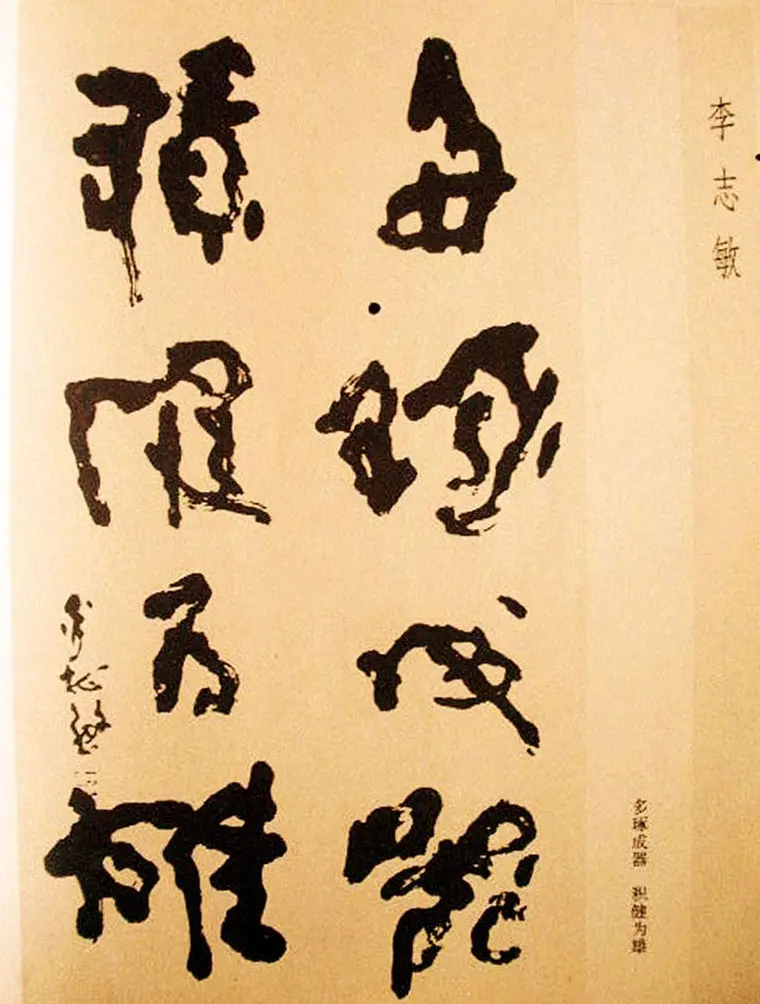 李志敏
多琢成器 积健为雄
多琢成器
積健為雄
李志敏